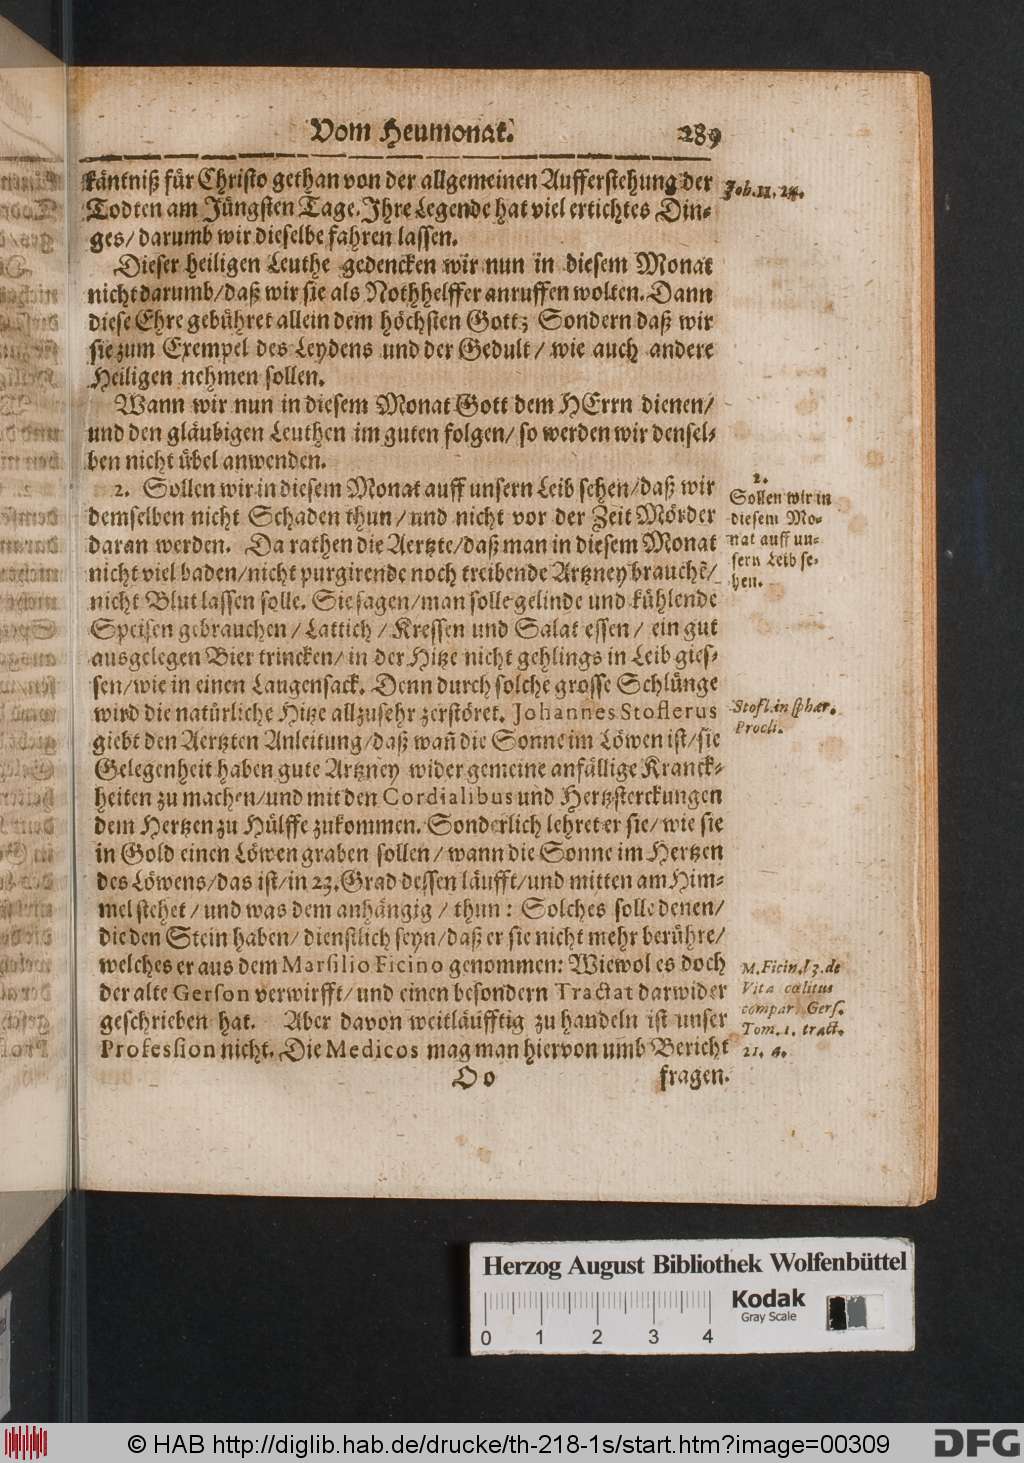 Vom Heumonat. 289
käntniß für Christo gethan von der allgemeinen Aufferstehung der
Todten am Jüngsten Tage. Ihre Legende hat viel ertichtes Din-
ges/ darumb wir dieselbe fahren lassen.
Joh. 11, 24.
Dieser heiligen Leuthe gedencken wir nun in diesem Monat
nicht darumb/ daß wir sie als Nothhelffer anruffen wolten. Dann
diese Ehre gebühret allein dem höchsten Gott; Sondern daß wir
sie zum Exempel des Leydens und der Gedult/ wie auch andere
Heiligen nehmen sollen.
Wann wir nun in diesem Monat Gott dem HErrn dienen/
und den gläubigen Leuthen im guten folgen/ so werden wir densel-
ben nicht übel anwenden.
2. Sollen wir in diesem Monat auff unsern Leib sehen/ daß wir
demselben nicht Schaden thun/ und nicht vor der Zeit Mörder
daran werden. Da rathen die Aertzte/ daß man in diesem Monat
nicht viel baden/ nicht purgirende noch treibende Artzney brauchē/
nicht Blut lassen solle. Sie sagen/ man solle gelinde und kühlende
Speisen gebrauchen/ Lattich/ Kressen und Salat essen/ ein gut
ausgelegen Bier trincken/ in der Hitze nicht gehlings in Leib gies-
sen/ wie in einen Laugensack. Denn durch solche grosse Schlünge
wird die natürliche Hitze allzusehr zerstöret. Johannes Stoflerus
giebt den Aertzten Anleitung/ daß wañ die Sonne im Löwen ist/ sie
Gelegenheit haben gute Artzney wider gemeine anfällige Kranck-
heiten zu machen/ und mit den Cordialibus und Hertzsterckungen
dem Hertzen zu Hülffe zukommen. Sonderlich lehret er sie/ wie sie
in Gold einen Löwen graben sollen/ wann die Sonne im Hertzen
des Löwens/ das ist/ in 23. Grad dessen läufft/ und mitten am Him-
mel stehet/ und was dem anhängig/ thun: Solches solle denen/
die den Stein haben/ dienstlich seyn/ daß er sie nicht mehr berühre/
welches er aus dem Marsilio Ficino genommen: Wiewol es doch
der alte Gerson verwirfft/ und einen besondern Tractat darwider
geschrieben hat. Aber davon weitläufftig zu handeln ist unser
Profession nicht. Die Medicos mag man hiervon umb Bericht
2.
Sollen wir in
diesem Mo-
nat auff un-
sern Leib se-
hen.
Stofl. in sphær.
Procli.
M. Ficin. l 3. de
Vita cœlitus
compar. Gers.
Tom. 1. tract.
21. 4.
O o fragen.
Herzog August Bibliothek Wolfenbüttel
0 1 2 3 4
Kodak
Gray Scale
© HAB http://diglib.hab.de/drucke/th-218-1s/start.htm?image=00309
DFG